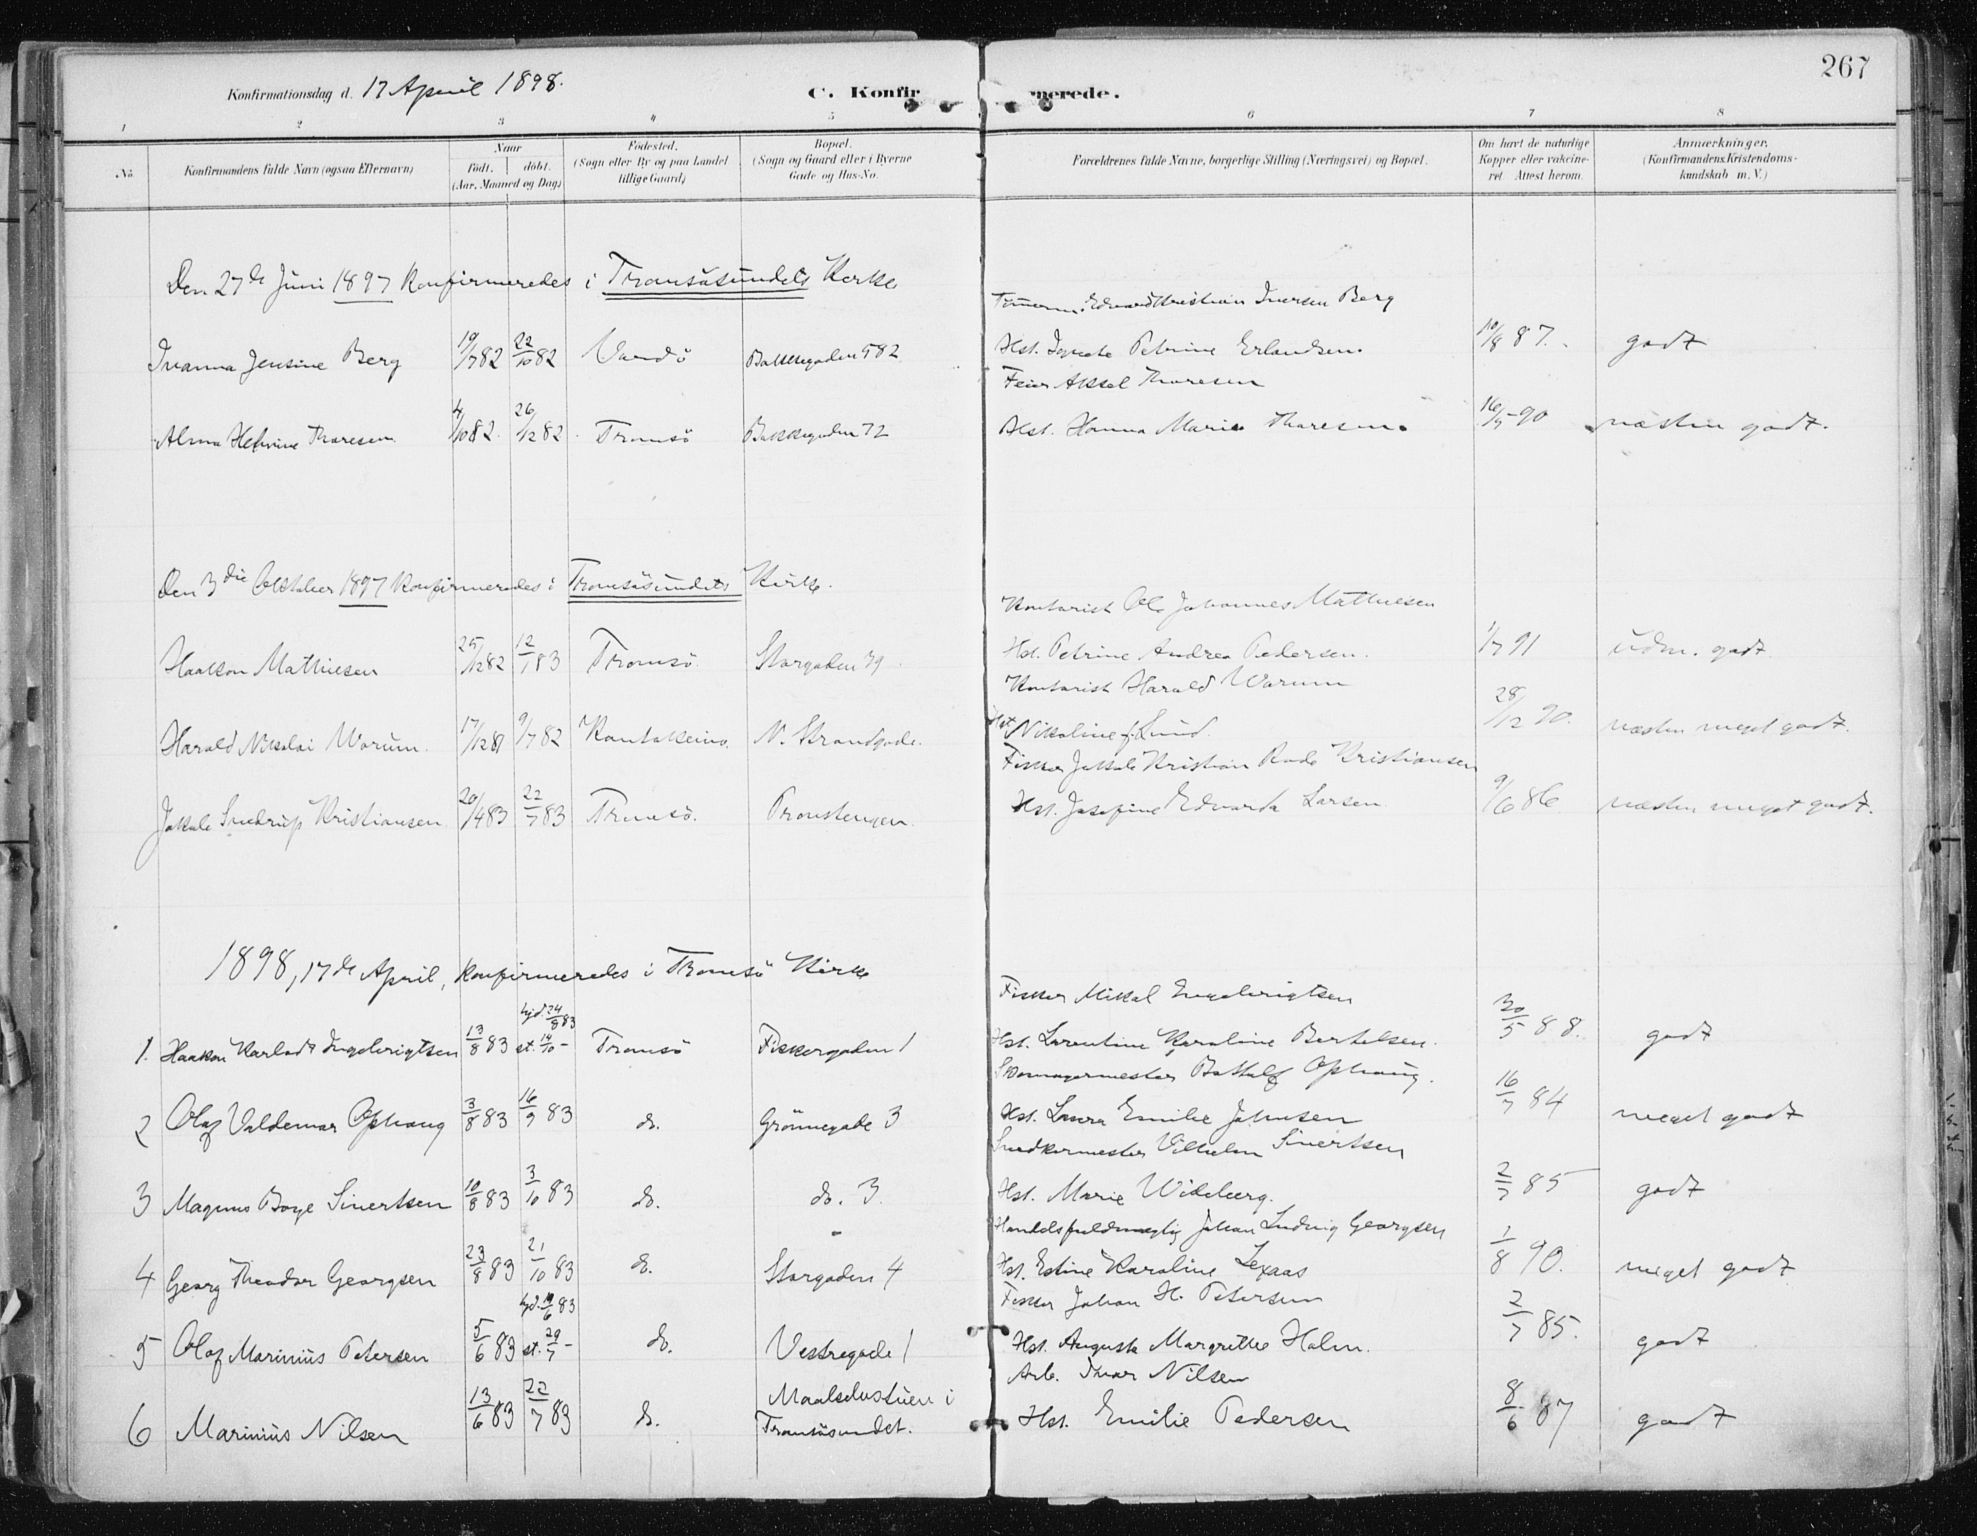 267
Konfirmationsdag d. 17 April 1898.
C. Konfirmerede.
1 2 3 4 5 6 7 8
No. Konfirmandens fulde Navn (ogsaa Efternavn) Naar født. døbt. (Aar, Maaned og Dag) Fødested. (Sogn eller By og paa Landet tillige Gaard) Bopæl. (Sogn og Gaard eller i Byerne Gade og Hus-No. Forældrenes fulde Navne, borgerlige Stilling (Næringsvei) og Bopæl. Om havt de naturlige Kopper eller vakcineret. Attest herom. Anmærkninger. (Konfirmandens Kristendomskundskab m. V.)
Den 27de Juni 1897 konfirmeredes i Tromsösundets Kirke
Edvard Kristian Iversen Berg
Ivanna Jensine Berg 19/7 82 22/10 82 Vardö Bakkegaden 582 Hst. Petrine Erlandsen. 10/8 87. godt
Feier Aksel Thoresen
Alma Thoresen 4/10 82. 26/12 82. Tromsö Bakkegaden 72 Hst. Hanna Marie Thoresen. 16/5 90 næsten godt.
Den 3die Oktober 1897 konfirmeredes i Tromsösundets Kirke.
Kontorist Ole Johannes Mathiesen
Haakon Mathiesen 25/12 82 12/1 83 Tromsö. Storgaden 79. Hst. Petrine Andrea Pedersen. 1/7 91 udm. godt.
Kontorist Harald Worum
Harald Nikolai Worum. 17/12 81 9/7 82 Kautokeino. N. Strandgade. Hst. Nikoline f. Lund. 28/12 90. næsten meget godt.
Fisker Jakob Kristian Kristiansen
Jakob Kristiansen 20/4 83 22/7 83 Tromsö. Pronstengen. Hst. Josefine Edvarda Larsen. 9/6 86 næsten meget godt.
1898, 17de April, konfirmeredes i Tromsö Kirke
Fisker Mikal Engebrigtsen
1. Haakon Ingebrigtsen 13/8 83 hjd. 24/8 83 st. 14/10 - Tromsö Fiskergaden 1 Hst. Laurentine Karoline Bertelsen. 30/5 88. godt
Skomagermester Ophaug.
2 Olaf Valdemar Ophaug 3/8 83 16/9 83 do. Grönnegade 3 Hst. Laura Emilie Johnsen 16/7 84 meget godt
Snedkermester Vilhelm Sivertsen
3 Magnus Boye Sivertsen 10/8 83 3/10 83 do. do. 3. Hst. Marie Wikeberg. 2/7 85 godt
Handelsfuldmægtig Johan Ludvig Georgsen
4 Georg Theodor Georgsen 23/8 83 21/10 83 do. Storgaden 4 Hst. Estine Karoline Lexaas 1/8 90. meget godt.
Fisker Johan H. Petersen
5 Olaf Marinius Petersen 5/6 83 hjd. 10/6 83 st. 29/7 - do. Vestregade 1 Hst. Augusta Margrethe Holm. 2/7 85. godt
Arb. Ivar Nilsen
6 Marinius Nilsen 13/6 83 22/7 83 do. Maalselvstuen i Tromsösundet. Hst. Emilie Pedersen 8/6 87 godt